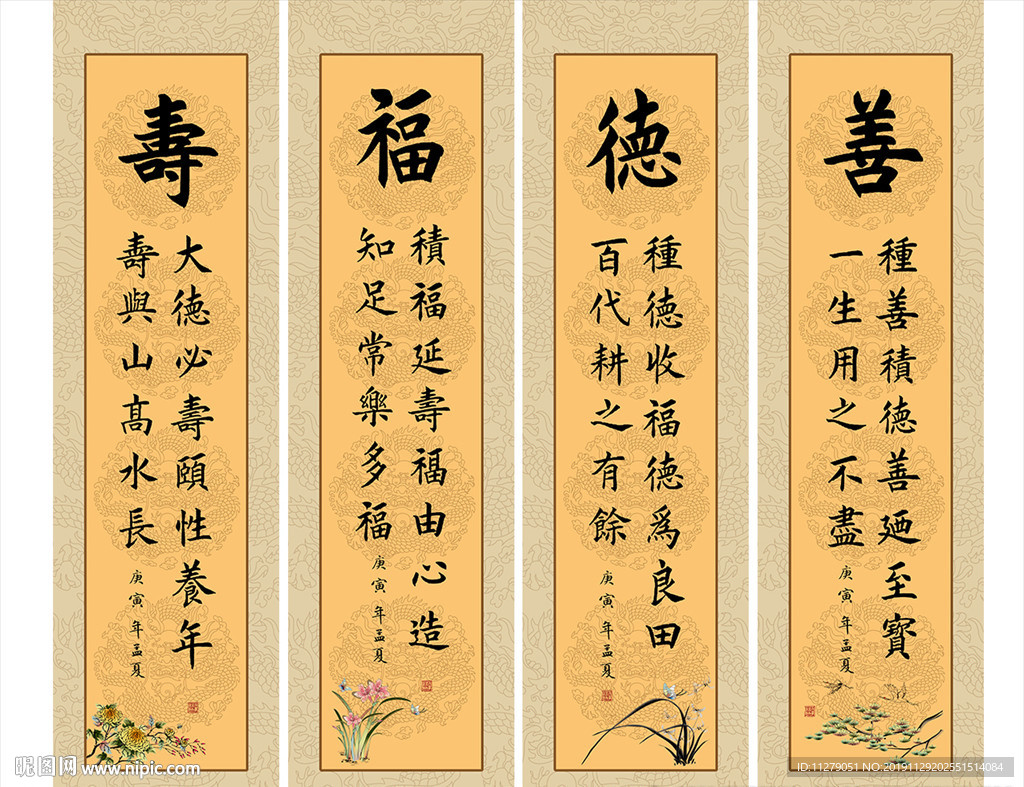 善
種善積德善廼至寶
一生用之不盡
庚寅年孟夏
德
種德收福德為良田
百代耕之有餘
庚寅年孟夏
福
積福延壽福由心造
知足常樂多福
庚寅年孟夏
壽
大德必壽頤性養年
壽與山高水長
庚寅年孟夏
昵图网 www.nipic.com
ID:11279051 NO:20191129202551514084